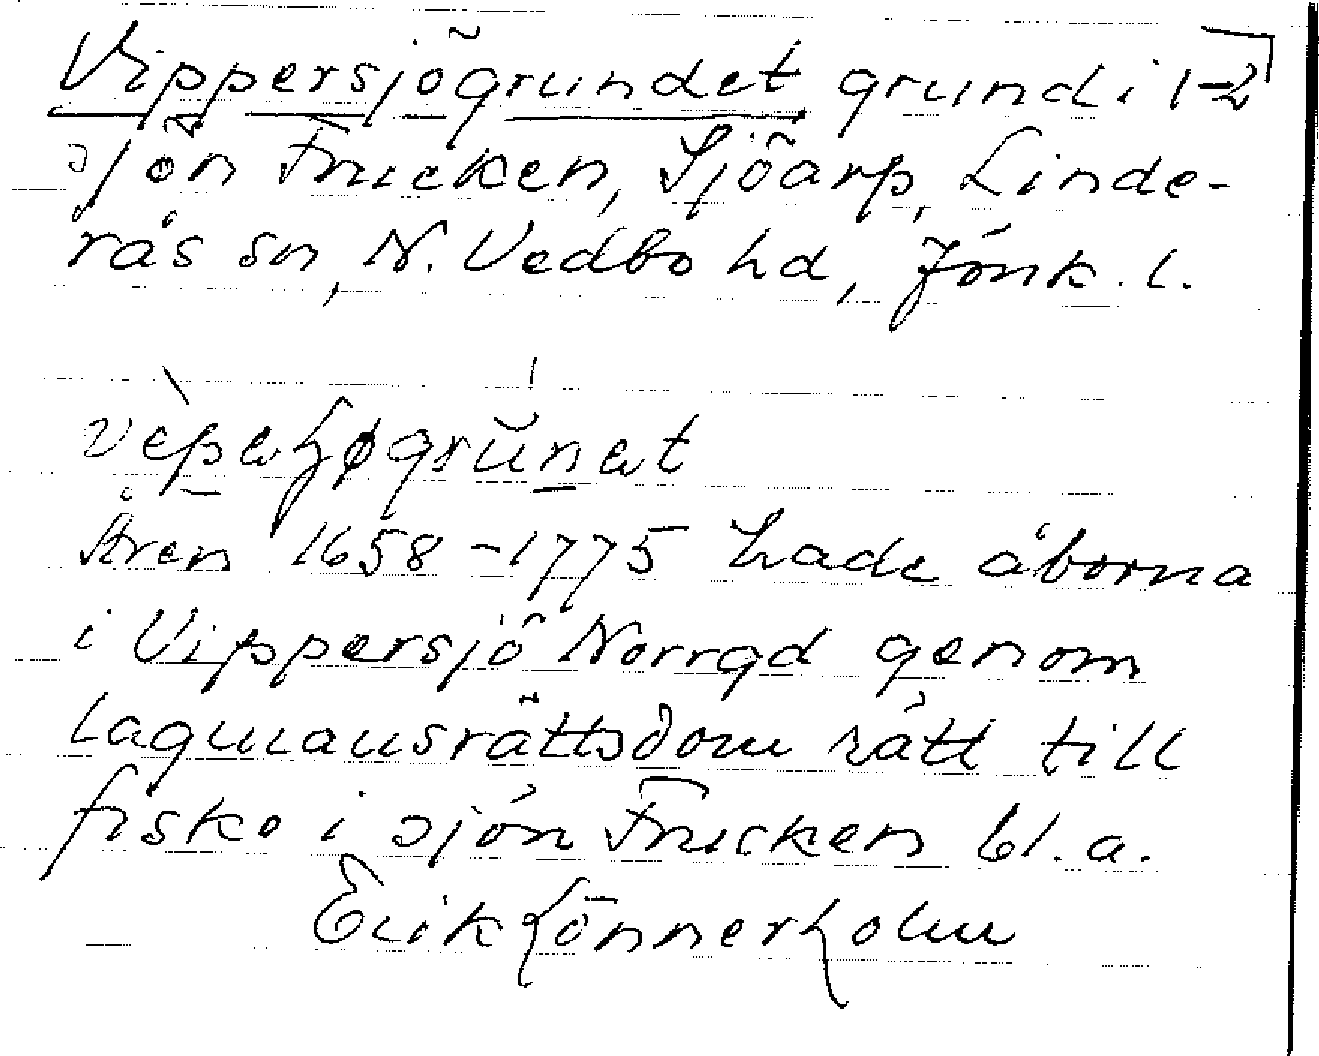 Vippersjögrundet grund i 1-2
sjön Frucken, Sjöarp, Linde-
rås sn, N. Vedbo hd, Jönk. l.
Åren 1658-1775 hade åborna
i Vippersjö Norrgd genom
lagmansrättsdom rätt till
fiske i sjön Frucken bl.a.
Erik Lönnerholm